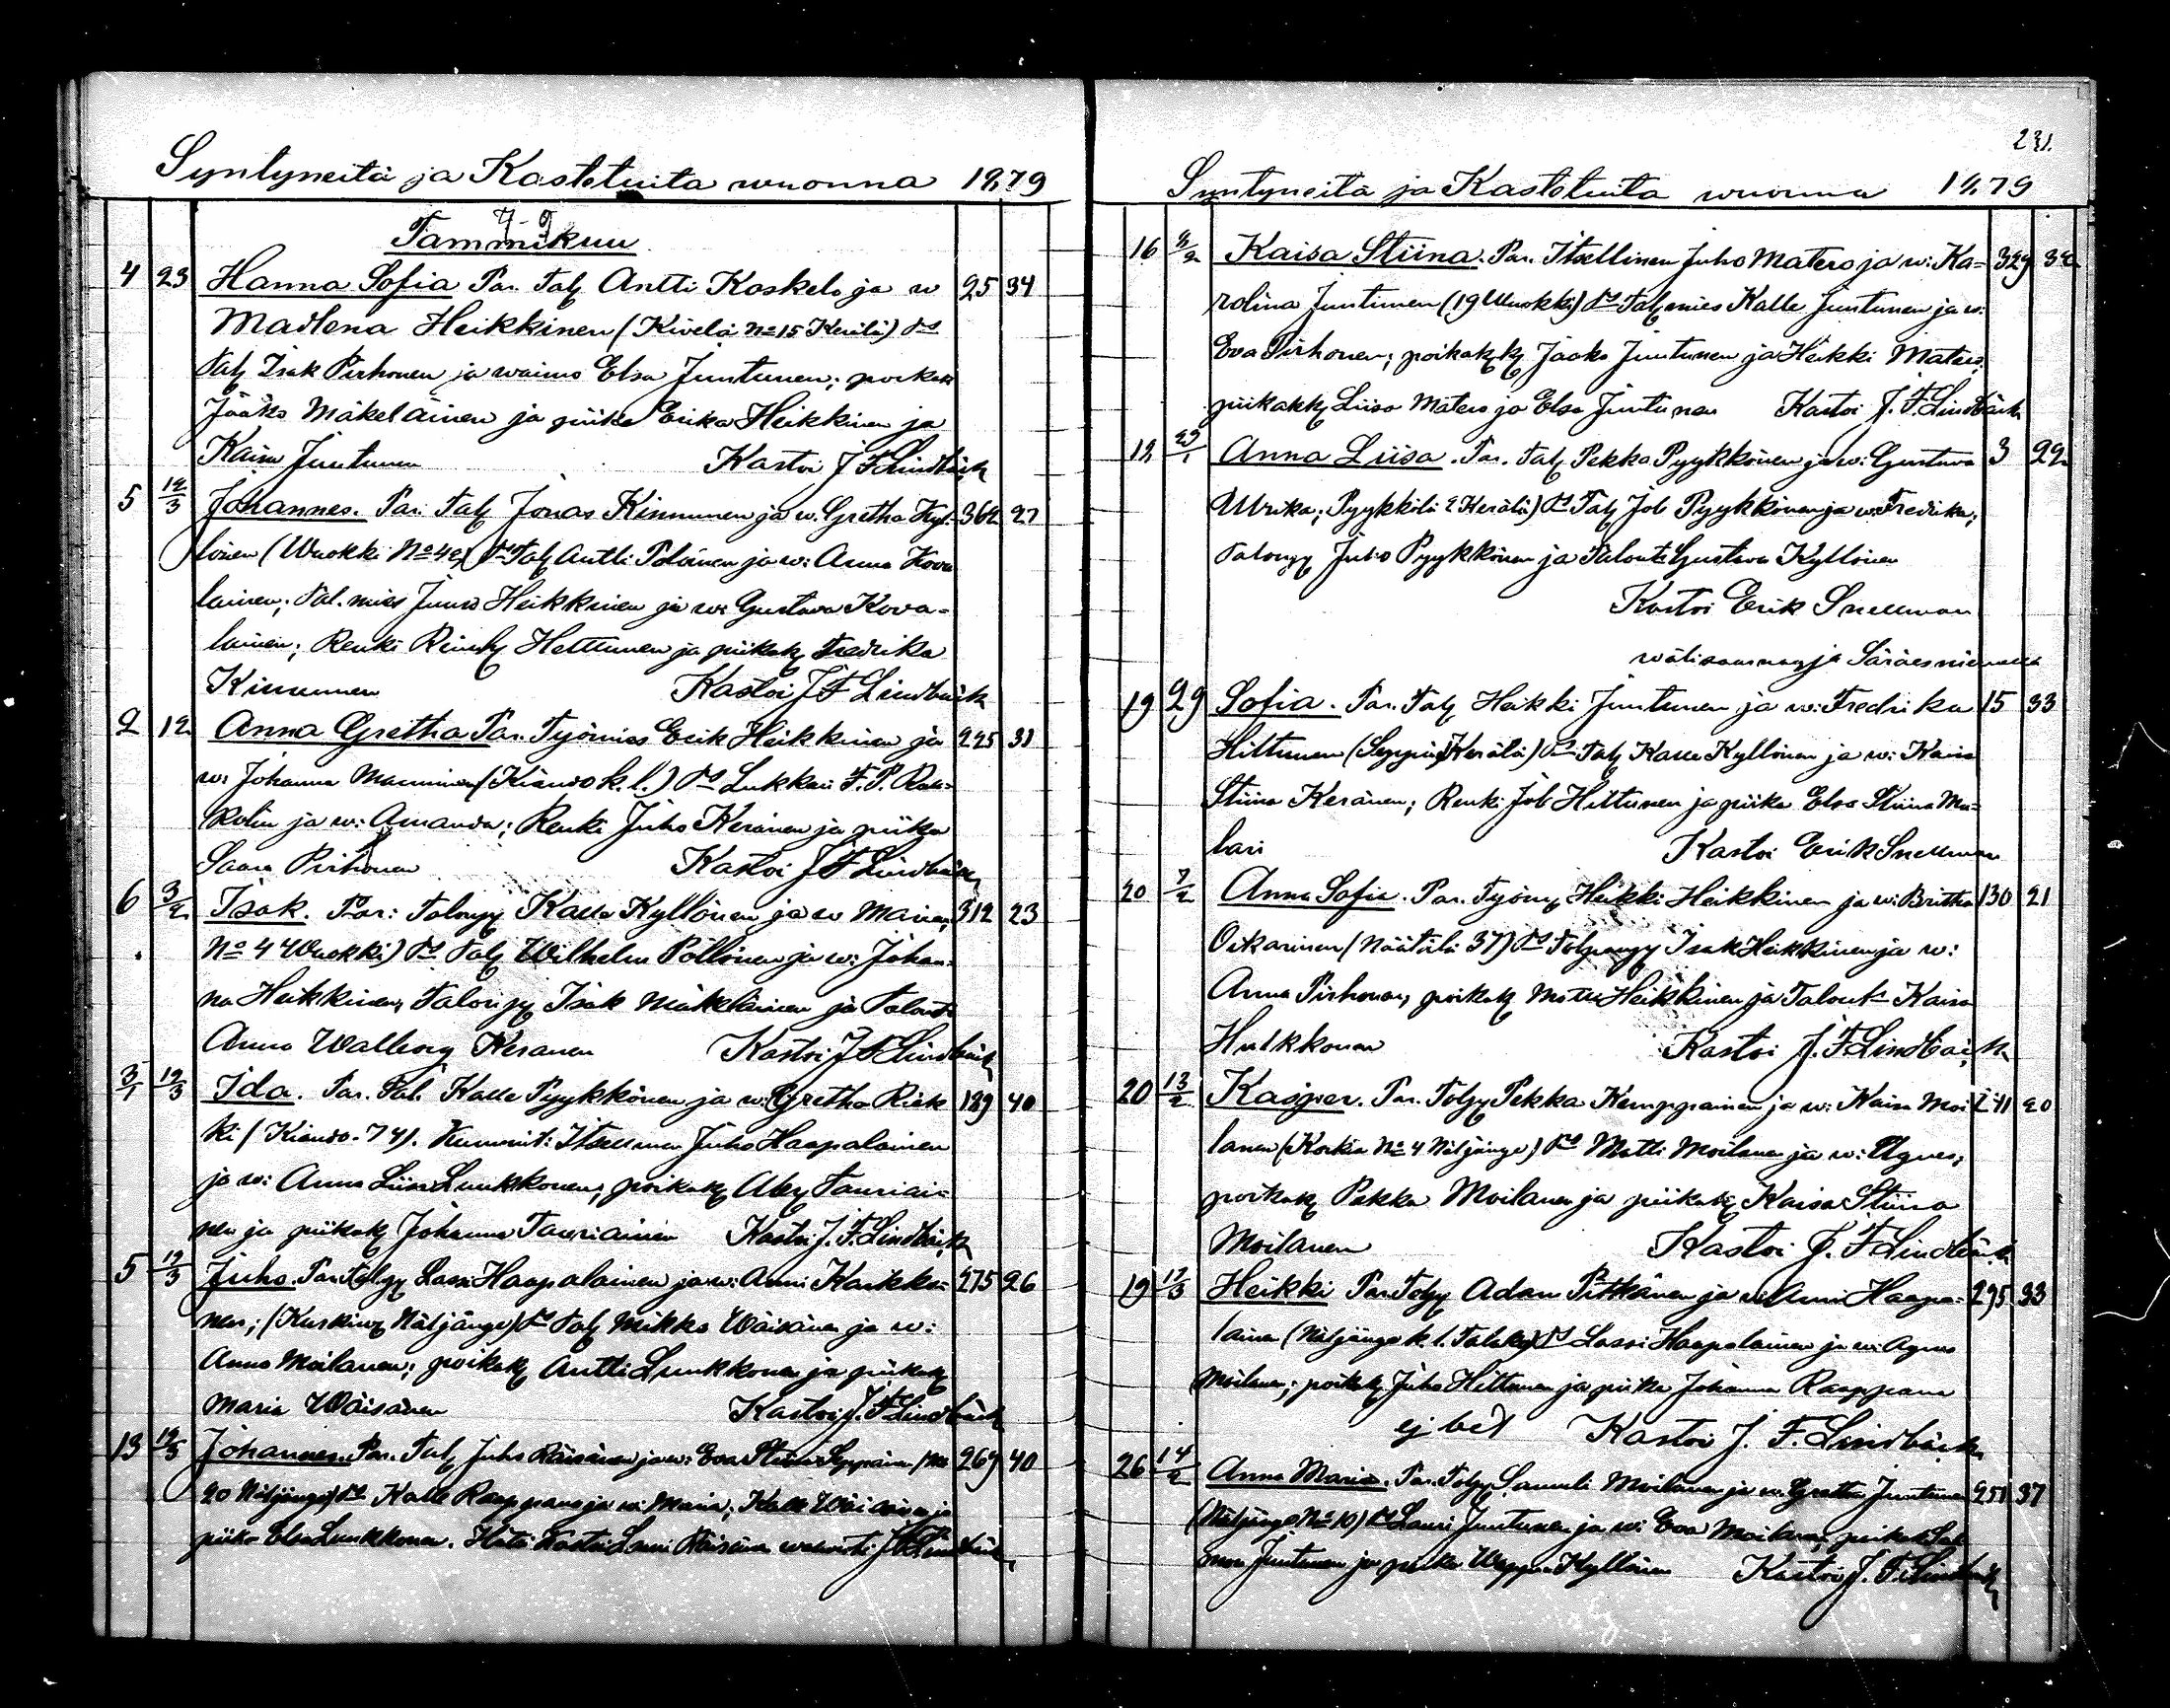 Syntyneitä ja Kastetuita wuonna 1879
Tammikuu
4 23 Hanna Sofia Par. Tal. Antti Koskelo ja w 25 34
Madlena Heikkinen (Kivelä No 15 Kerälä)
Tal. Isak Pirhonen ja waimo Elsa Juntunen; poikak
Jaako Mäkeläinen ja piika Erika Heikkinen ja
Kaisa Juntunen Kastoi J F Lindbäck
5 12/3 Johannes. Par. Tal. Jonas Kinnunen ja w. Gretha Kyl- 362 27
lönen (Wuokki No 42) Tal. Antti Polönen ja w: Anna Kova
lainen; Tal. mies Heikkinen ja w: Gustava Kova-
lainen; Renki Hetttunen ja piikak Fredrika
Kinnunen Kastoi J F Lindbäck
2 12 Anna Gretha Par. Työmies Erik Heikkinen ja 225 31
w: Johanna Manninen (Kiando k. l.) Lukkari F. P.
ja w: Amanda; Renki Juho Keränen ja piika
Saara Pirhonen Kastoi J F Lindbäck
6 3/2 Isak. Par: Talonp Kalle Kyllönen ja w Maria, 312 23
No 44 Wuokki) Tal. Wilhelm Pöllönen ja w: Johan-
na Heikkinen, Talonp Isak Mäkeläinen ja Talont.
Anna Walborg Keränen Kastoi J F Lindbäck
3/1 12/3 Ida. Par. Tal. Kalle Pyykkönen ja w: Gretha Riek 189 40
ki (Kiando. 74). Kummit: Itsellinen Juho Haapalainen
ja w: Anna Liisa Luukkonen; poikak Abr Tauriai-
nen ja piikak Johanna Tauriainen Kastoi J. F. Lindbäck
5 12/3 Juho. Par. Talp Lassi Haapalainen ja w: Anni Karkko- 275 26
nen; (Näljängö) Tal. Mikko Wäisänen ja w:
Anna Moilanen; poikak Antti Luukkonen ja piikak
Maria Wäisänen Kastoi J. F. Lindbäck
13 12/3 Johannes. Par. Tal. Juho Räisänen ja w: Eva Stiina Seppänen (No 269 40
20 Näljängö) Kalle Raappana ja w: Maria; Kalle Wäisänen ja
piika Elsa Luukkonen. Hätä Kastoi Lauri Räisänen wahwisti J F Lindbäck
231.
Syntyneitä ja Kastetuita wuonna 1879
16 Kaisa Stiina. Par. Itsellinen Juho Matero ja w: Ka- 329 32
rolina Juntunen (19 Wuokki) Tal. mies Kalle Juntunen ja w:
Eva Pirhonen; poikak Jaako Juntunen ja Heikki Matero;
piikakk Liisa Matero ja Elsa Juntunen Kastoi J. F. Lindbäck
12 29/1 Anna Liisa. Par. Tal. Pekka Pyykkönen ja w: Gustava 3 22
Ulrika; Pyykkölä 2 Kerälä) Tal. Job Pyykkönen ja w: Fredrika;
Talonp Juho Pyykkönen ja Talont. Gustava Kyllönen
Kastoi Erik Snellman
wälisaarnaaja Säräesniemellä
19 29 Sofia. Par. Tal. Heikki Juntunen ja w: Fredrika 15 33
Hiltunen (Kerälä) Tal. Kalle Kyllönen ja w: Kaisa
Stiina Keränen; Renki Job Hiltunen ja piika Elsa Stiina Mu-
lari Kastoi Erik Snellman
20 7/2 Anna Sofia. Par. Työm Heikki Heikkinen ja w: Britha 130 21
Oikarinen (Näätälä 37) Isak Heikkinen ja w:
Anna Pirhonen, poikak Heikkinen ja Talont. Kaisa
Hulkkonen Kastoi J. F. Lindbäck
20 13/2 Kasper. Par. Talp Pekka Kemppainen ja w: Kaisa Moi 20
lanen (No 4 Näljängö) Matti Moilanen ja w: Agnes,
poikak Pekka Moilanen ja piikak Kaisa Stiina
Moilanen Kastoi J. F. Lindbäck
19 12/3 Heikki Par. Talp Adam Pitkänen ja w: Anni Haapa- 295 33
lainen (Näljängö k. l.) Lassi Haapalainen ja w: Agnes
Moilanen; poikak Juho Hiltunen ja piika Johanna Raappana
ej bet Kastoi J. F. Lindbäck
26 14/2 Anna Maria. Par. Talp Samuli Moilanen ja w: Gretha Juntunen 251 37
(Näljängö No 10) Lauri Juntunen ja w: Eva Moilanen; poikak Salo
mon Juntunen ja piika Wappu Kyllönen Kastoi J. F. Lindbäck